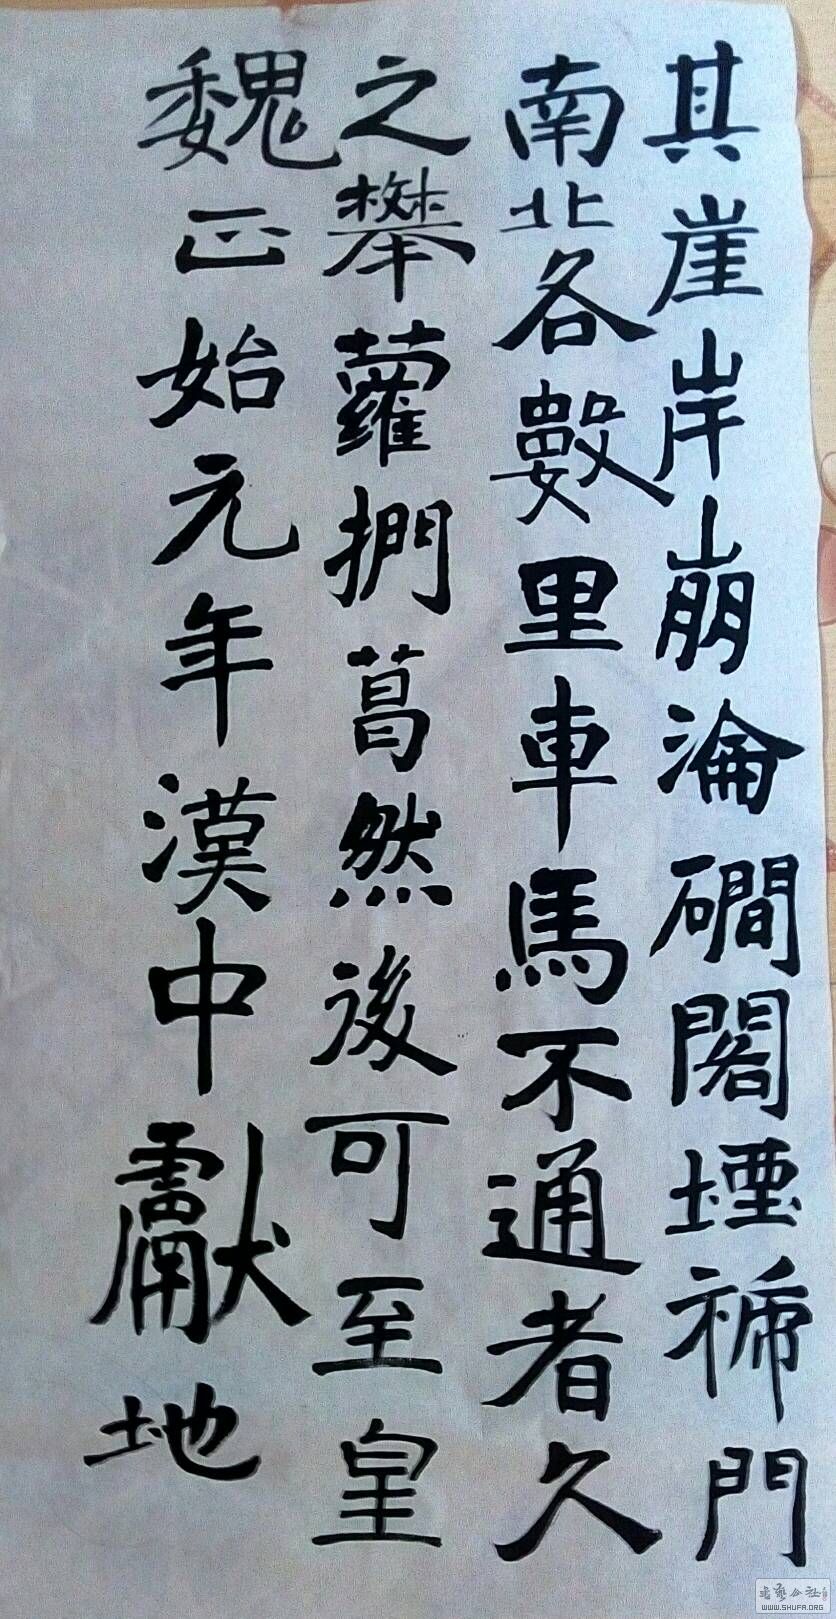 其崖岸崩淪磵閣堙禘門
南北各數里車馬不通者久
之攀蘿捫葛然後可至皇
魏正始元年漢中獻地
書藝公社
WWW.SHUFA.ORG